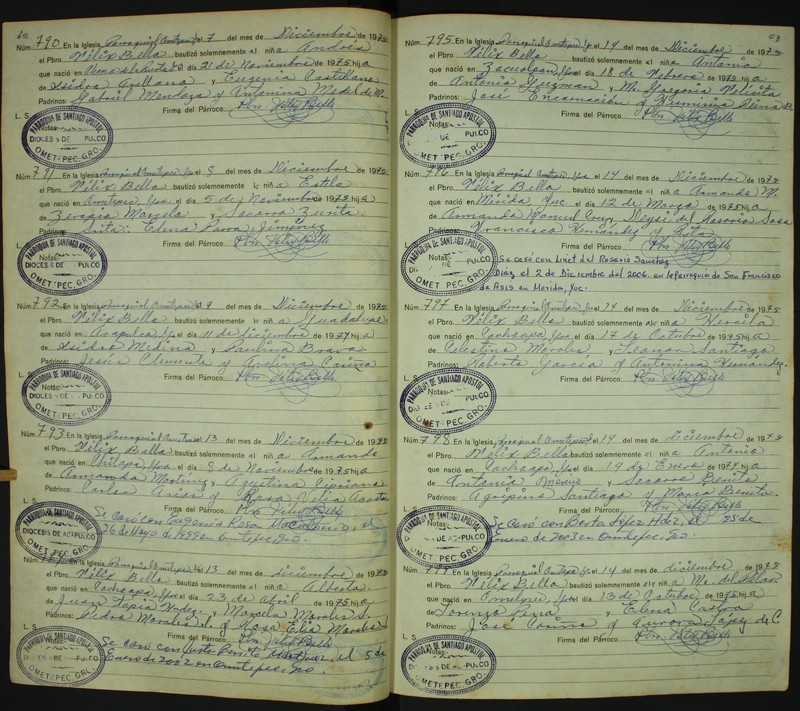 62
Núm. 790. En la Iglesia Parroquial Ometepec, Gro. el 7 del mes de Diciembre de 1975
el Pbro. Félix Bello bautizó solemnemente al niña Andrés
que nació en el día 21 de Noviembre de 1975 hija
de Isidro Arellano y Eugenia Castellano
Padrinos: Gabriel Mendoza y Antonina Medel de M.
Firma del Párroco. Pbro. Félix Bello
L. S.
PARROQUIA DE SANTIAGO APOSTOL
Notas:
DIOCESIS DE ACAPULCO
OMETEPEC, GRO.
Núm. En la Iglesia Parroquial Ometepec, Gro. el 8 del mes de Diciembre de 1975
el Pbro. Félix Bello bautizó solemnemente la niña Estela
que nació en Ometepec, Gro. el día 5 de Noviembre de 1975 hija
de Marcelo y Socorro Zurita
Padrinos: Elena Jiménez
Firma del Párroco. Pbro. Félix Bello
L. S.
PARROQUIA DE SANTIAGO APOSTOL
Notas:
DIOCESIS DE ACAPULCO
OMETEPEC, GRO.
Núm. 792. En la Iglesia Parroquial Ometepec, Gro. el 9 del mes de Diciembre de 1975
el Pbro. Félix Bello bautizó solemnemente la niña Guadalupe
que nació en Acapulco, Gro. el día 11 de diciembre de 1974 hija
de Isidro Medina y Bravo
Padrinos: Jesús Clemente y
Firma del Párroco. Pbro. Félix Bello
L. S.
PARROQUIA DE SANTIAGO APOSTOL
Notas:
DIOCESIS DE ACAPULCO
OMETEPEC, GRO.
Núm. 793. En la Iglesia Parroquial Ometepec 13 del mes de Diciembre de 1975
el Pbro. Félix Bello bautizó solemnemente al niña Armando
que nació en Chilapa, Gro. el día 8 de Noviembre de 1975 hija
de Armando Martínez y Agustina Cipriano
Padrinos: Carlos Arias y Rosa Velia Acosta
Firma del Párroco. Pbro. Félix Bello
L. S.
PARROQUIA DE SANTIAGO APOSTOL
DIOCESIS DE ACAPULCO
OMETEPEC, GRO.
Se casó con Eugenia Rosa el
26 de Mayo de en Ometepec, Gro.
Núm. En la Iglesia Parroquial Ometepec, Gro. 13 del mes de diciembre de 1975
el Pbro. Félix Bello bautizó solemnemente al niña Alberto
que nació en Cochoapa, Gro. el día 23 de abril de 1975 hija
de Juan Tapia y Marcelina Morales
Padrinos: Pedro Morales y Rosa Elia Morales
Firma del Párroco. Pbro. Félix Bello
L. S.
PARROQUIA DE SANTIAGO APOSTOL
Notas:
DIOCESIS DE ACAPULCO
OMETEPEC, GRO.
Se casó con Justa Benito Martínez, el 5 de
Enero de 2002 en Ometepec, Gro.
63
Núm. 795. En la Iglesia Parroquial Ometepec, Gro. el 14 del mes de Diciembre de 1975
el Pbro. Félix Bello bautizó solemnemente al niña Antonio
que nació en Zacualpan, Gro. el día 18 de Febrero de 1975 hija
de Antonio Guzmán y Ma. Gregoria
Padrinos: José Encarnación y Herminia
Firma del Párroco. Pbro. Félix Bello
L. S.
PARROQUIA DE SANTIAGO APOSTOL
Notas:
DIOCESIS DE ACAPULCO
OMETEPEC, GRO.
Núm. 776. En la Iglesia Parroquial Ometepec, Gro. el 14 del mes de Diciembre de 1975
el Pbro. Félix Bello bautizó solemnemente al niña Armando M.
que nació en Mérida, Yuc. el día 12 de Marzo de 1975 hija
de Armando Manuel y Deysi del Rosario Sosa
Padrinos: Francisco Hernández y Rita
Firma del Párroco. Pbro. Félix Bello
L. S.
PARROQUIA DE SANTIAGO APOSTOL
OMETEPEC, GRO.
Se caso con Linet del Rosario Sanchez
Díaz el 2 de Diciembre del 2006. en la Parroquia de San Francisco
de Asis en Merida, Yuc.
Núm. 777. En la Iglesia Parroquial Ometepec, Gro. 14 del mes de Diciembre de 1975
el Pbro. Félix Bello bautizó solemnemente niña Hersila
que nació en Cochoapa, Gro. el día 17 de Octubre de 1975 hija
de Celestino Morales y Leonor Santiago
Padrinos: Roberto García y Antonina Hernández
Firma del Párroco. Pbro. Félix Bello
L. S.
PARROQUIA DE SANTIAGO APOSTOL
Notas:
DIOCESIS DE ACAPULCO
OMETEPEC, GRO.
Núm. 778. En la Iglesia Parroquial Ometepec el 14 del mes de diciembre de 1975
el Pbro. Félix Bello bautizó solemnemente al niña Antonio
que nació en Cochoapa, Gro. el día 19 de Enero de 1974 hija
de Antonio y Socorro Benito
Padrinos: Agripino Santiago y María Benito
Firma del Párroco. Pbro. Félix Bello
L. S.
PARROQUIA DE SANTIAGO APOSTOL
Notas:
DE ACAPULCO
OMETEPEC, GRO.
Se Casó con Berta López Hdez, el 25 de
Enero de 2003 en Ometepec, Gro.
Núm. En la Iglesia Parroquial Ometepec, Gro. el 14 del mes de diciembre de 1975
el Pbro. Félix Bello bautizó solemnemente niña Ma. del Pilar
que nació en Ometepec, Gro. el día 13 de Octubre de 1975 hija
de Lorenzo Peña y Elena Castro
Padrinos: José y Aurora López de C.
Firma del Párroco. Pbro. Félix Bello
L. S.
PARROQUIA DE SANTIAGO APOSTOL
Notas:
DIOCESIS DE ACAPULCO
OMETEPEC, GRO.